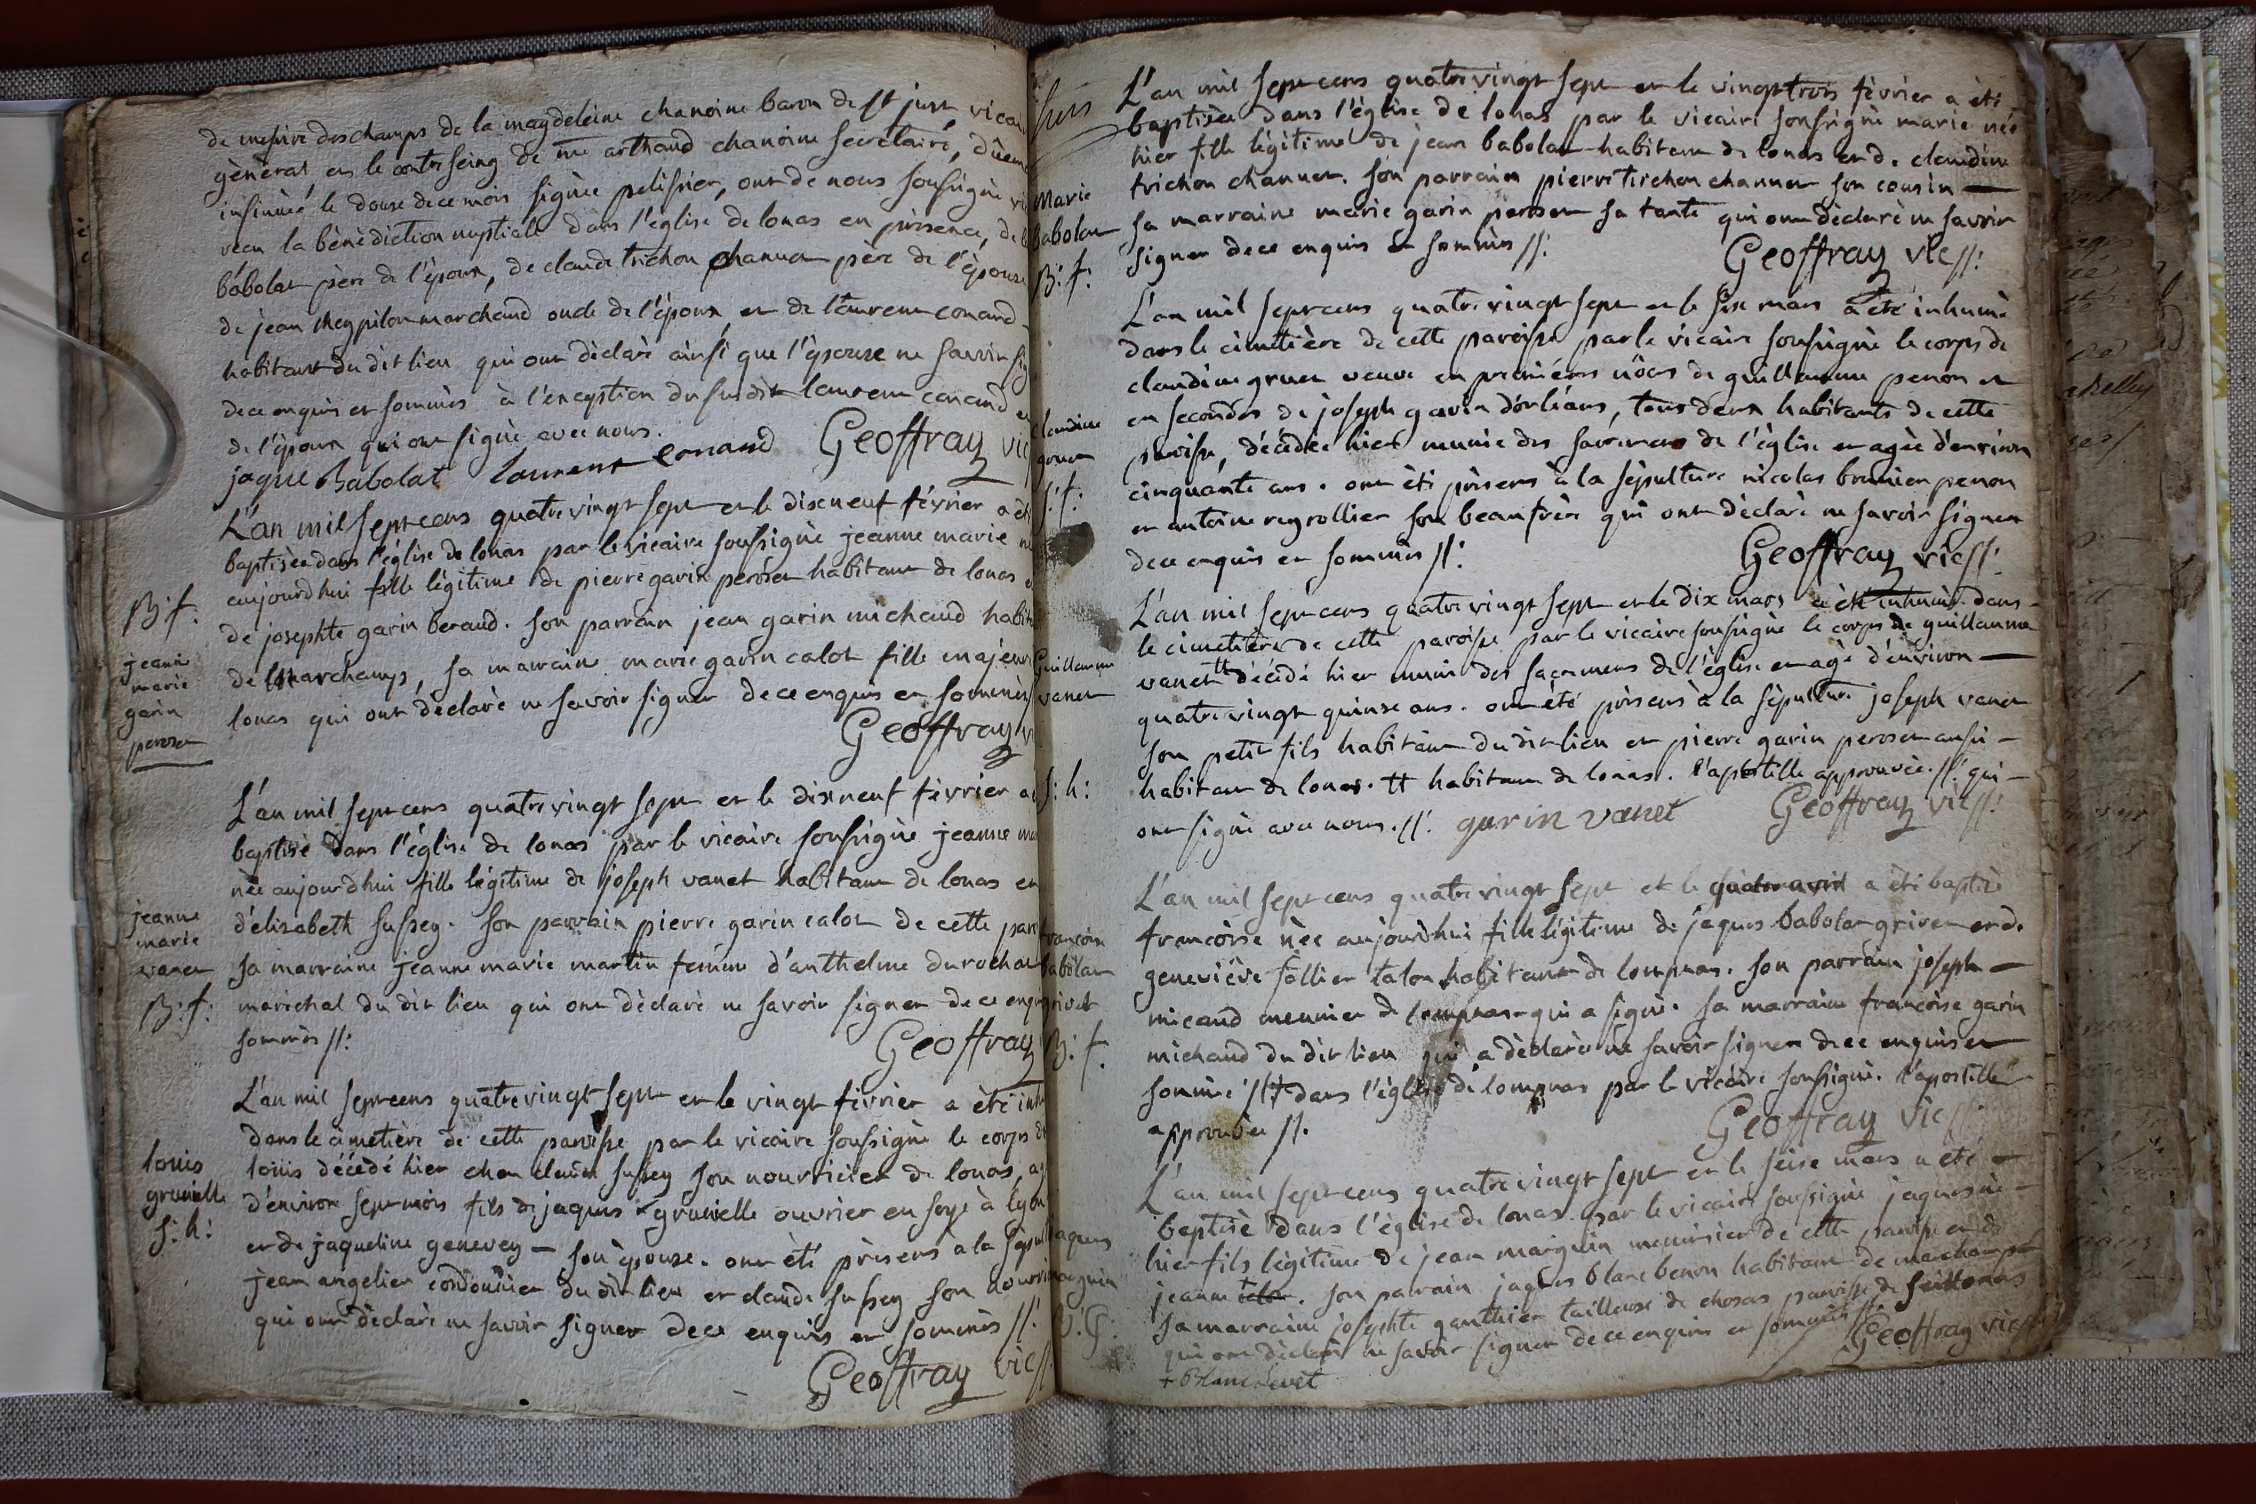 de messire deschamps de la magdeleine chanoine baron de st just, vicai
général en le contreseing de me arthaud chanoine secretaire, düem
insinuée le douze de ce mois signée pelissier, ont de nous soussigné vic
reçu la bénédiction nuptiale dans l'église de lonas en présence, de
babolat père de l'époux, de claude trichon channet père de l'épouse
de jean marchand oncle de l'époux et de laurent conand
habitant du dit lieu qui ont déclaré ainsi que l'épouse ne savoir sig
de ce enquis et sommés à l'exception du susdit laurent conand et
de l'époux qui ont signé avec nous.
jaque Babolat laurent conand Geoffray vic
L'an mil sept cens quatre vingt sept et le dixneuf février a été
baptisée dans l'église de lonas par le vicaire soussigné jeanne marie
aujourdhui fille légitime de pierre garin peroset habitant de lonas
de josephte garin beraud. son parrain jean garin michaud habit
de marchamps, sa marraine marie garin calot fille majeur
lonas qui ont déclaré ne savoir signer de ce enquis et sommés
Geoffray v
B: f:
jeanne
marie
garin
peroset
L'an mil sept cens quatre vingt sept et le dixneuf février a
baptisé dans l'église de lonas par le vicaire soussigné jeanne ma
née aujourdhui fille légitime de joseph vanet habitant de lonas et
d'élisabeth sussey. son parrain pierre garin calot de cette par
sa marraine jeanne marie martin femme d'anthelme durochat
maréchal du dit lieu qui ont déclaré ne savoir signer de ce enq
sommés //:
Geoffray
jeanne
marie
vanet
B: f:
L'an mil sept cens quatre vingt sept et le vingt février a été inh
dans le cimetière de cette paroisse par le vicaire soussigné le corps de
louis décédé hier chez claude sussey son nourricier de lonas, a
d'environ sept mois fils de jaques gruvielle ouvrier en soye à lyon
et de jaqueline genevey — son épouse. ont été présens à la sépul
jean angelier cordonnier du dit lieu et claude sussey son nourri
qui ont déclaré ne savoir signer de ce enquis et sommés //:
Geoffray vic//
louis
gruvielle
S: h:
L'an mil sept cens quatre vingt sept et le vingt trois février a été
baptisée dans l'église de lonas par le vicaire soussigné marie née
hier fille légitime de jean babolat habitant de lonas et de claudine
trichon channet. son parrain pierre trichon channet son cousin —
sa marraine marie garin peroset sa tante qui ont déclaré ne savoir
signer de ce enquis et sommés //:
Geoffray vic//:
Marie
babolat
B: f:
L'an mil sept cens quatre vingt sept et le six mars a été inhumé
dans le cimetière de cette paroisse par le vicaire soussigné le corps de
claudine gruet veuve en premières nôces de guillaume penon et
en secondes de joseph garin d'orléans, tous deux habitants de cette
paroisse, décédée hier munie des sacremens de l'église et agée d'environ
cinquante ans. ont été présens à la sépulture nicolas brunier penon
et antoine reyrollier son beaufrère qui ont déclaré ne savoir signer
de ce enquis et sommés //:
Geoffray vic//:
claudine
gruet
S: f:
L'an mil sept cens quatre vingt sept et le dix mars a été inhumé dans
le cimetière de cette paroisse par le vicaire soussigné le corps de guillaume
vanet tt décédé hier muni des sacremens de l'église et agé d'environ —
quatre vingt quinze ans. ont été présens à la sépulture joseph vanet
son petit fils habitant du dit lieu et pierre garin peroset aussi —
habitant de lonas. tt habitant de lonas. l'apostille approuvée. //: qui —
ont signé avec nous. //. garin vanet Geoffray vic//:
Guillaume
vanet
S: h:
L'an mil sept cens quatre vingt sept et le a été baptisée
françoise née aujourdhui fille légitime de jaques babolat grivet et de
geneviève follier talon habitant de lompnas. son parrain joseph —
micaud meunier de lompnas qui a signé. sa marraine françoise garin
michaud du dit lieu qui a déclaré ne savoir signer de ce enquis et
sommée //tt dans l'église de lompnas par le vicaire soussigné. l'apostille
approuvée //.
Geoffray vic//
françoise
babolat
grivet
B: f.
L'an mil sept cens quatre vingt sept et le seise mars a été
baptisé dans l'église de lonas par le vicaire soussigné jaques né
hier fils légitime de jean marguin menuisier de cette paroisse et de
jeanne son parrain jaques blanc benon habitant de marchamp
sa marraine josephte gauthier tailleuse de chosas paroisse de seillonas
qui ont déclaré ne savoir signer de ce enquis et sommés //:
Geoffray vic
jaques
marguin
B: G: